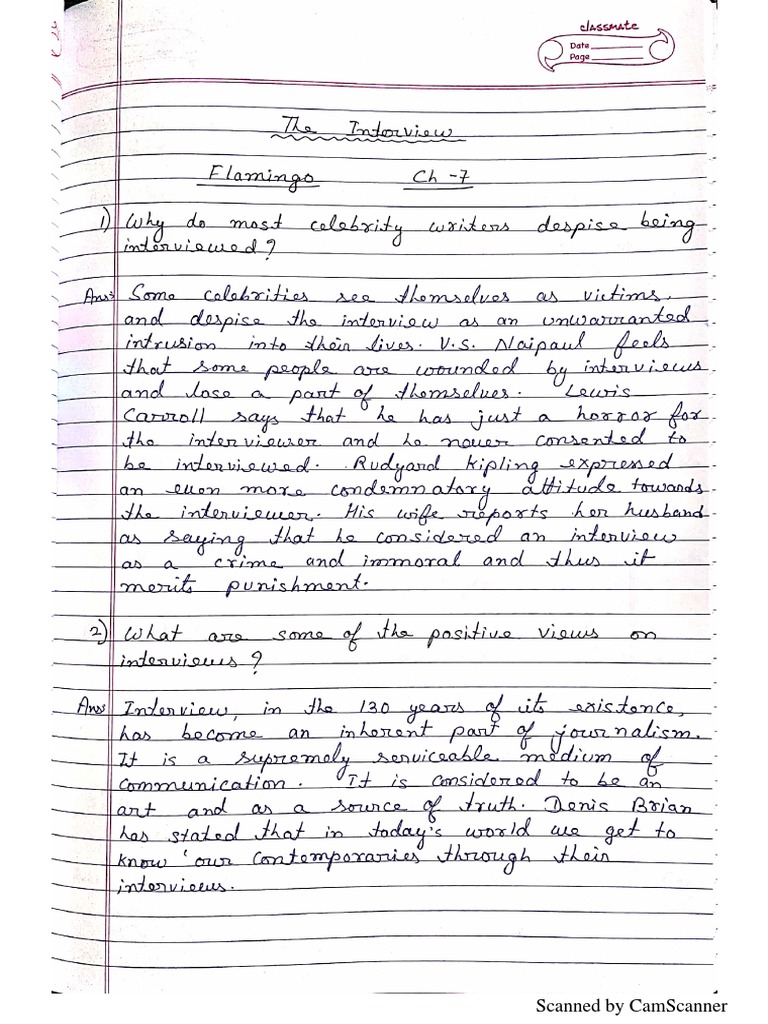 classmate
Date
Page
The Interview
Flamingo Ch -7
1) Why do most celebrity writers despise being
interviewed?
Ans: Some celebrities see themselves as victims,
and despise the interview as an unwarranted
intrusion into their lives. V.S. Naipaul feels
that some people are wounded by interviews
and lose a part of themselves. Lewis
Carroll says that he has just a horror for
the interviewer and he never consented to
be interviewed. Rudyard Kipling expressed
an even more condemnatory attitude towards
the interviewer. His wife reports her husband
as saying that he considered an interview
as a crime and immoral and thus it
merits punishment.
2) What are some of the positive views on
interviews?
Ans: Interview, in the 130 years of its existence,
has become an inherent part of journalism.
It is a supremely serviceable medium of
communication. It is considered to be an
art and as a source of truth. Denis Brian
has stated that in today's world we get to
know 'our contemporaries through their
interviews.
Scanned by CamScanner